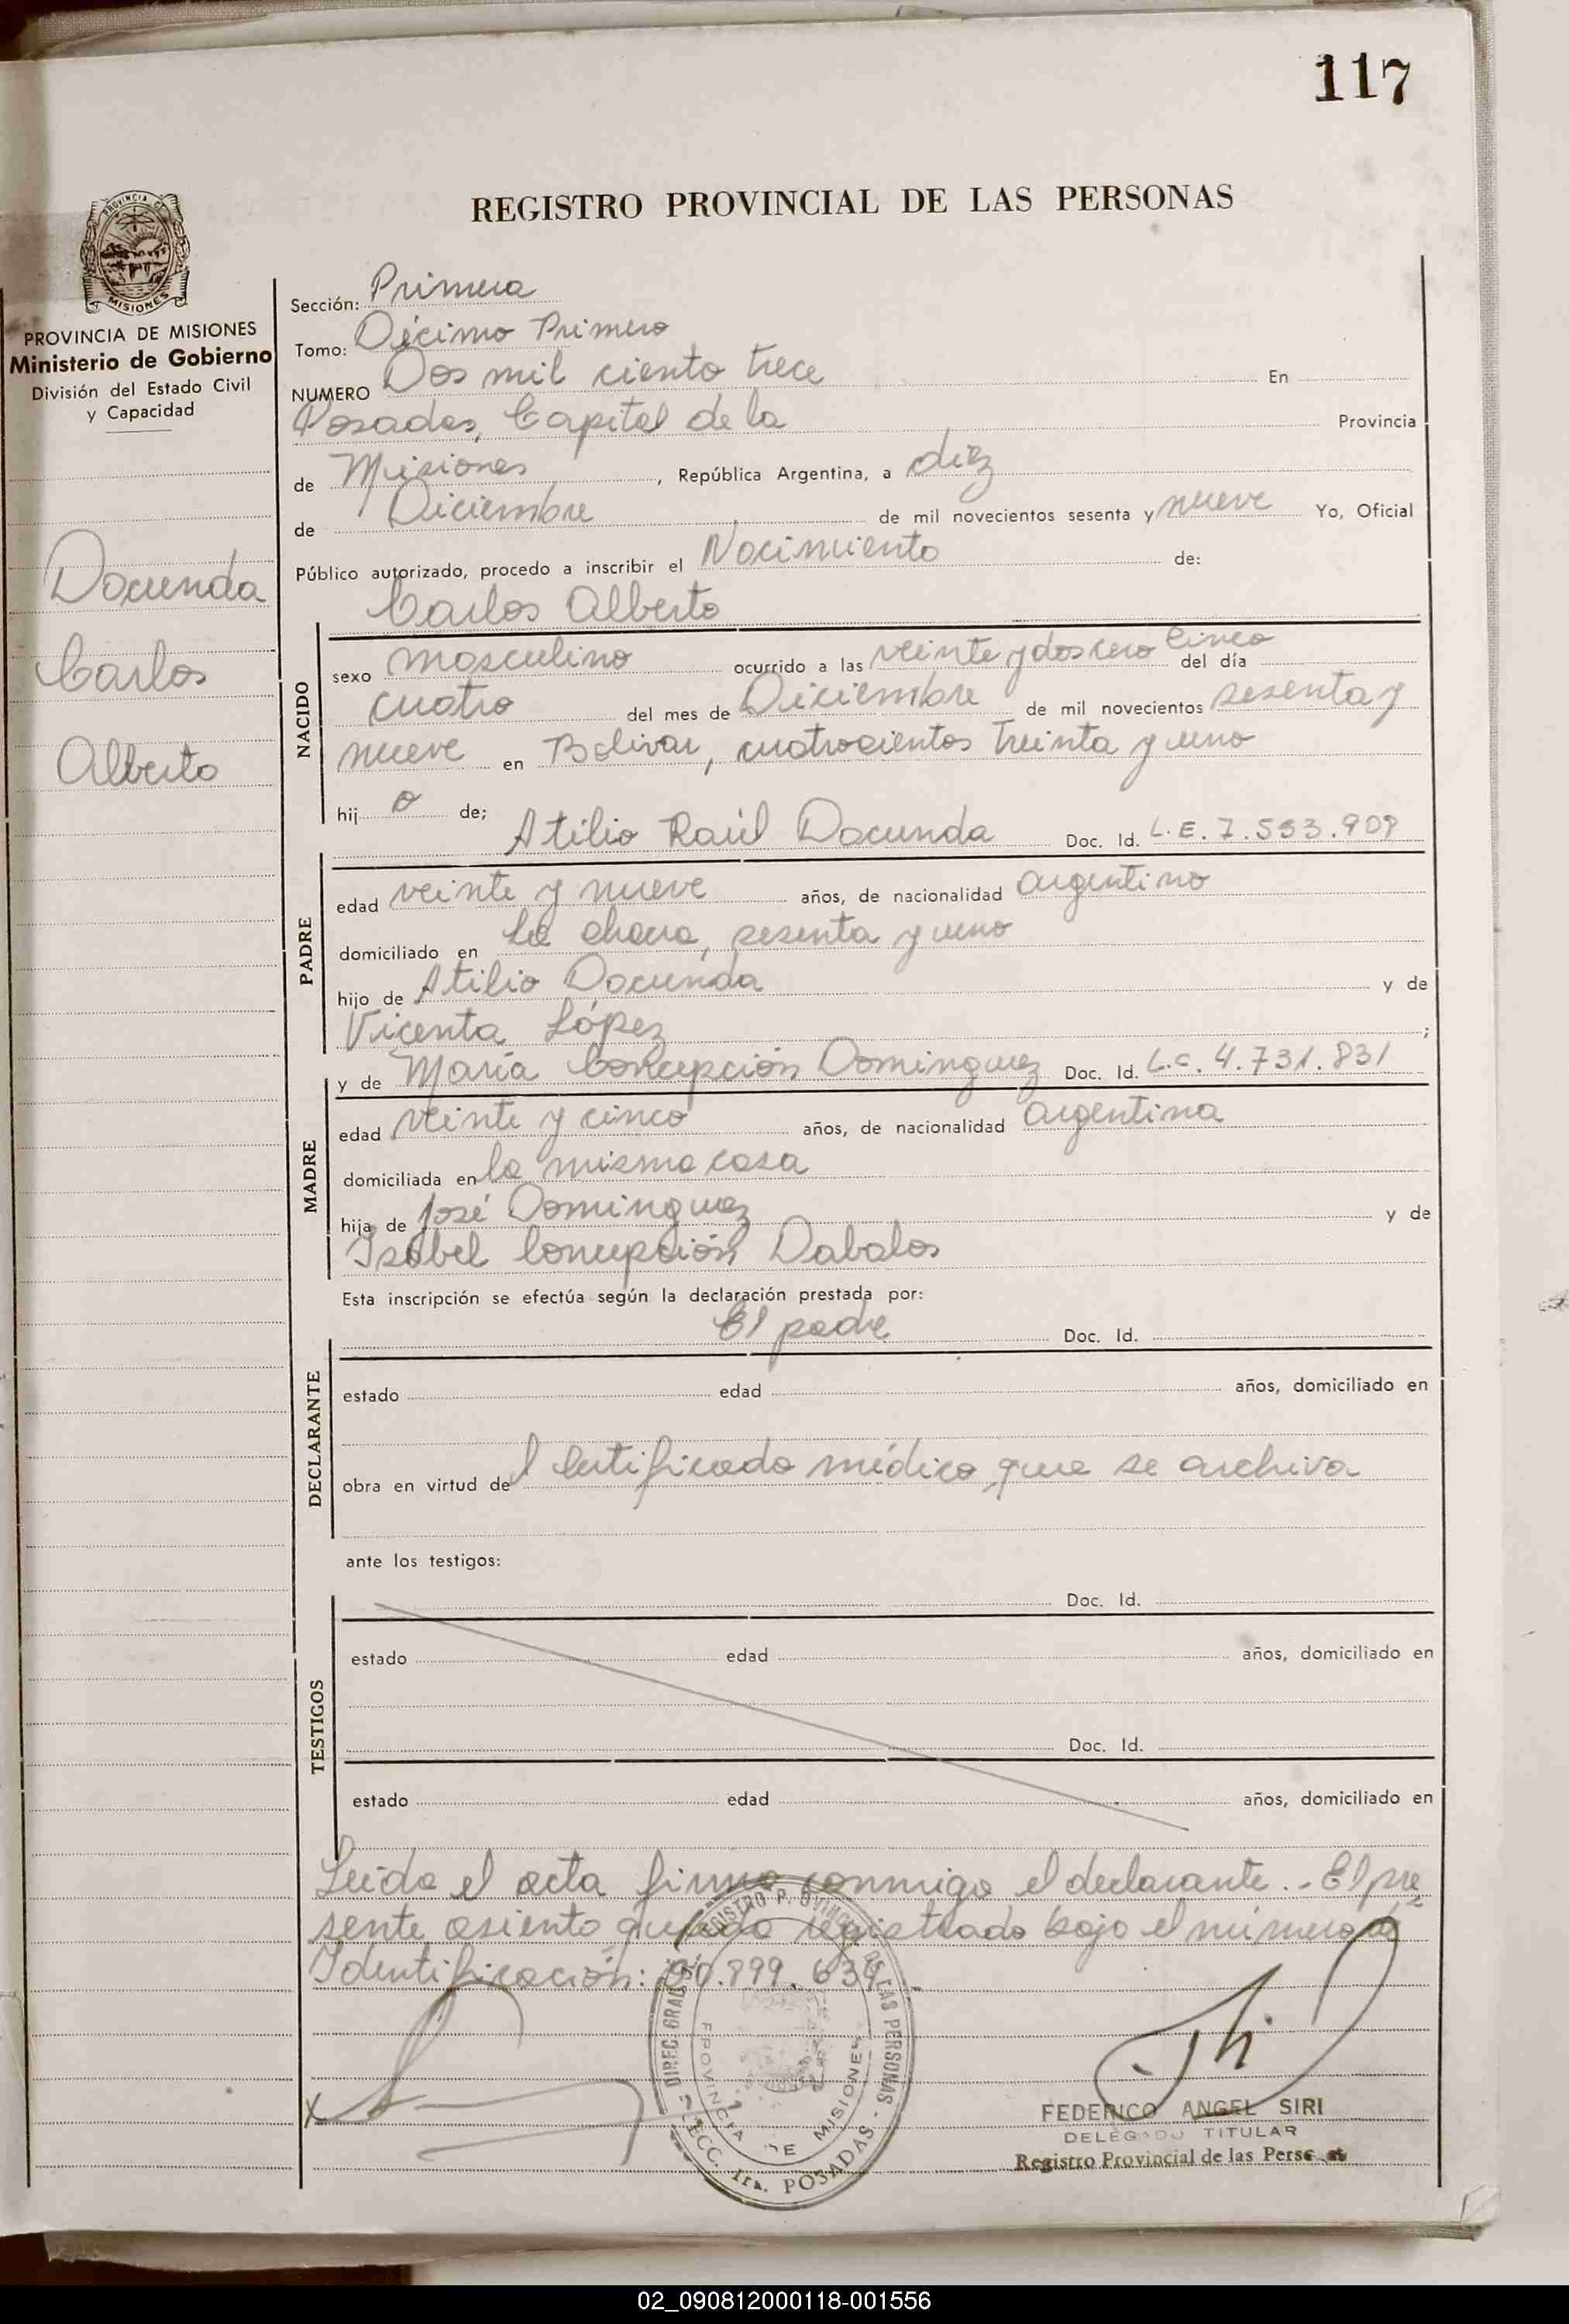 117
REGISTRO PROVINCIAL DE LAS PERSONAS
PROVINCIA DE
MISIONES
PROVINCIA DE MISIONES
Ministerio de Gobierno
División del Estado Civil
y Capacidad
Docunda
Carlos
Alberto
Sección: Primera
Tomo: Décimo Primero
NUMERO Dos mil ciento trece En
Posadas, Capital de la Provincia
de Misiones, República Argentina, a diez
de Diciembre de mil novecientos sesenta y nueve Yo, Oficial
Público autorizado, procedo a inscribir el Nacimiento de:
Carlos Alberto
NACIDO
sexo masculino ocurrido a las veinte y dos cero Cinco del día
cuatro del mes de Diciembre de mil novecientos sesenta y
nueve en Bolivar, cuatrocientos treinta y uno
hijo de;
Atilio Raúl Docunda Doc. Id. L.E. 7.553.909
PADRE
edad veinte y nueve años, de nacionalidad argentino
domiciliado en La chacra, sesenta y uno
hijo de Atilio Docunda y de
Vicenta López ;
y de María Concepción Dominguez Doc. Id. L.C. 4.731.831
MADRE
edad veinte y cinco años, de nacionalidad argentina
domiciliada en la misma casa
hija de José Dominguez y de
Isabel Concepción Dabalos
Esta inscripción se efectúa según la declaración prestada por:
El padre Doc. Id.
DECLARANTE
estado edad años, domiciliado en
obra en virtud del Certificado médico que se archiva
ante los testigos:
Doc. Id.
TESTIGOS
estado edad años, domiciliado en
Doc. Id.
estado edad años, domiciliado en
Leída el acta firma conmigo el declarante.- El pre
sente asiento queda registrado bajo el número de
Identificación: 20.899.
DIREC. GRAL. REGISTRO PROVINCIAL DE LAS PERSONAS - POSADAS
PROVINCIA DE MISIONES
FEDERICO ANGEL SIRI
DELEGADO TITULAR
Registro Provincial de las Personas
02_090812000118-001556